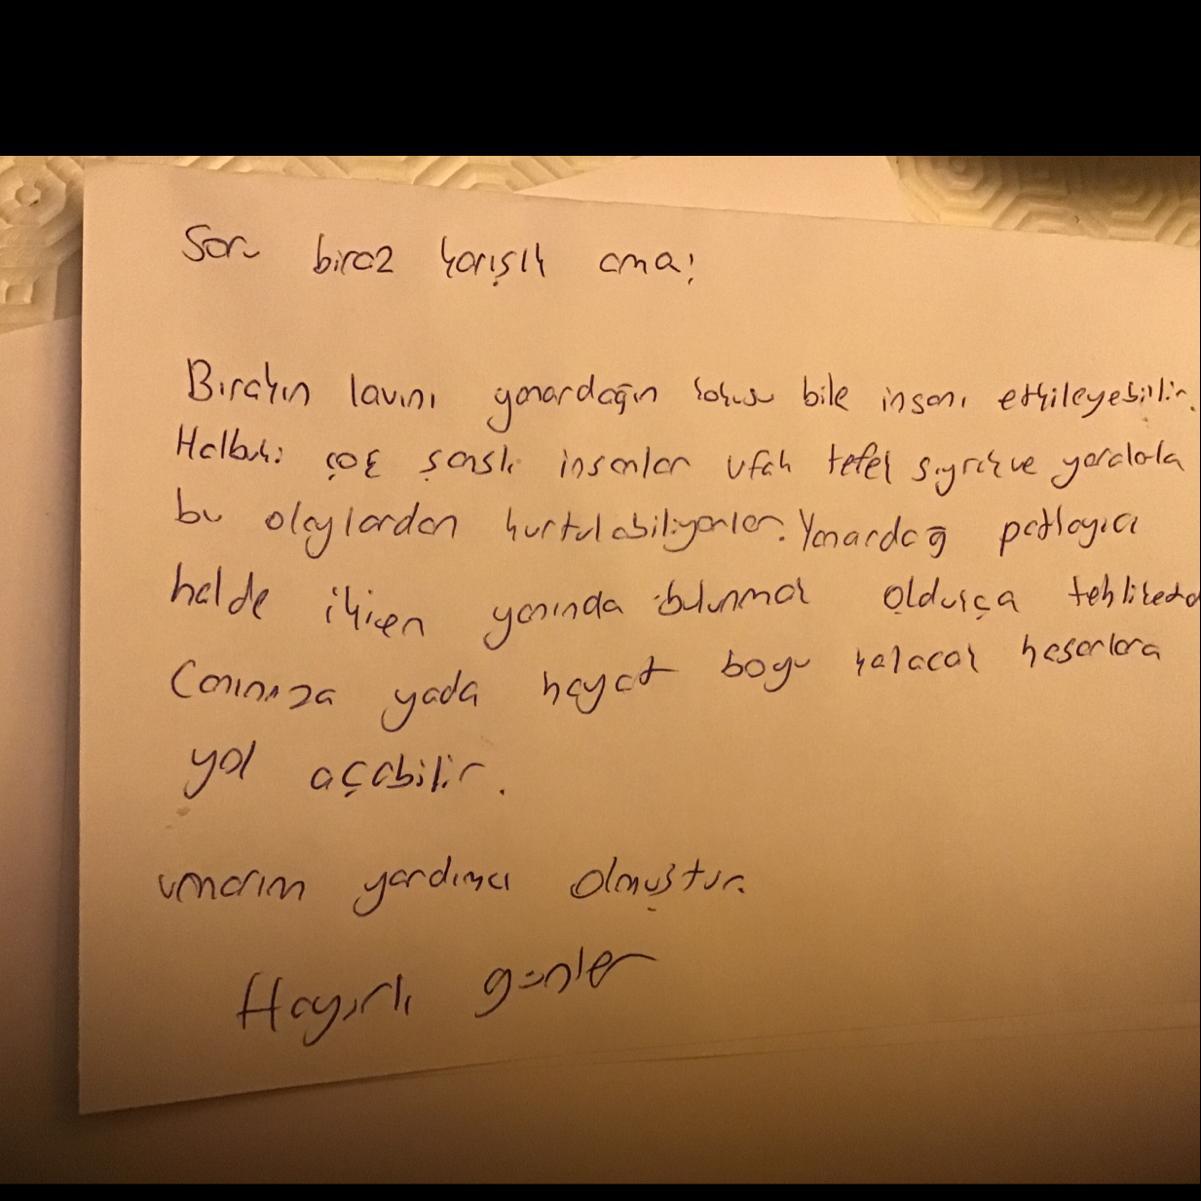 Soru biraz karışık ama:
Bırakın lavını yanardağın kokusu bile insanı etkileyebilir.
Halbuki çok şanslı insanlar ufak tefek sıyrık ve yaralarla
bu olaylardan kurtulabiliyorlar. Yanardağ patlayıcı
halde iken yanında bulunmak oldukça tehlikeli
Canınıza yada hayat boyu kalacak hasarlara
yol açabilir.
umarım yardımcı olmuştur.
Hayırlı günler